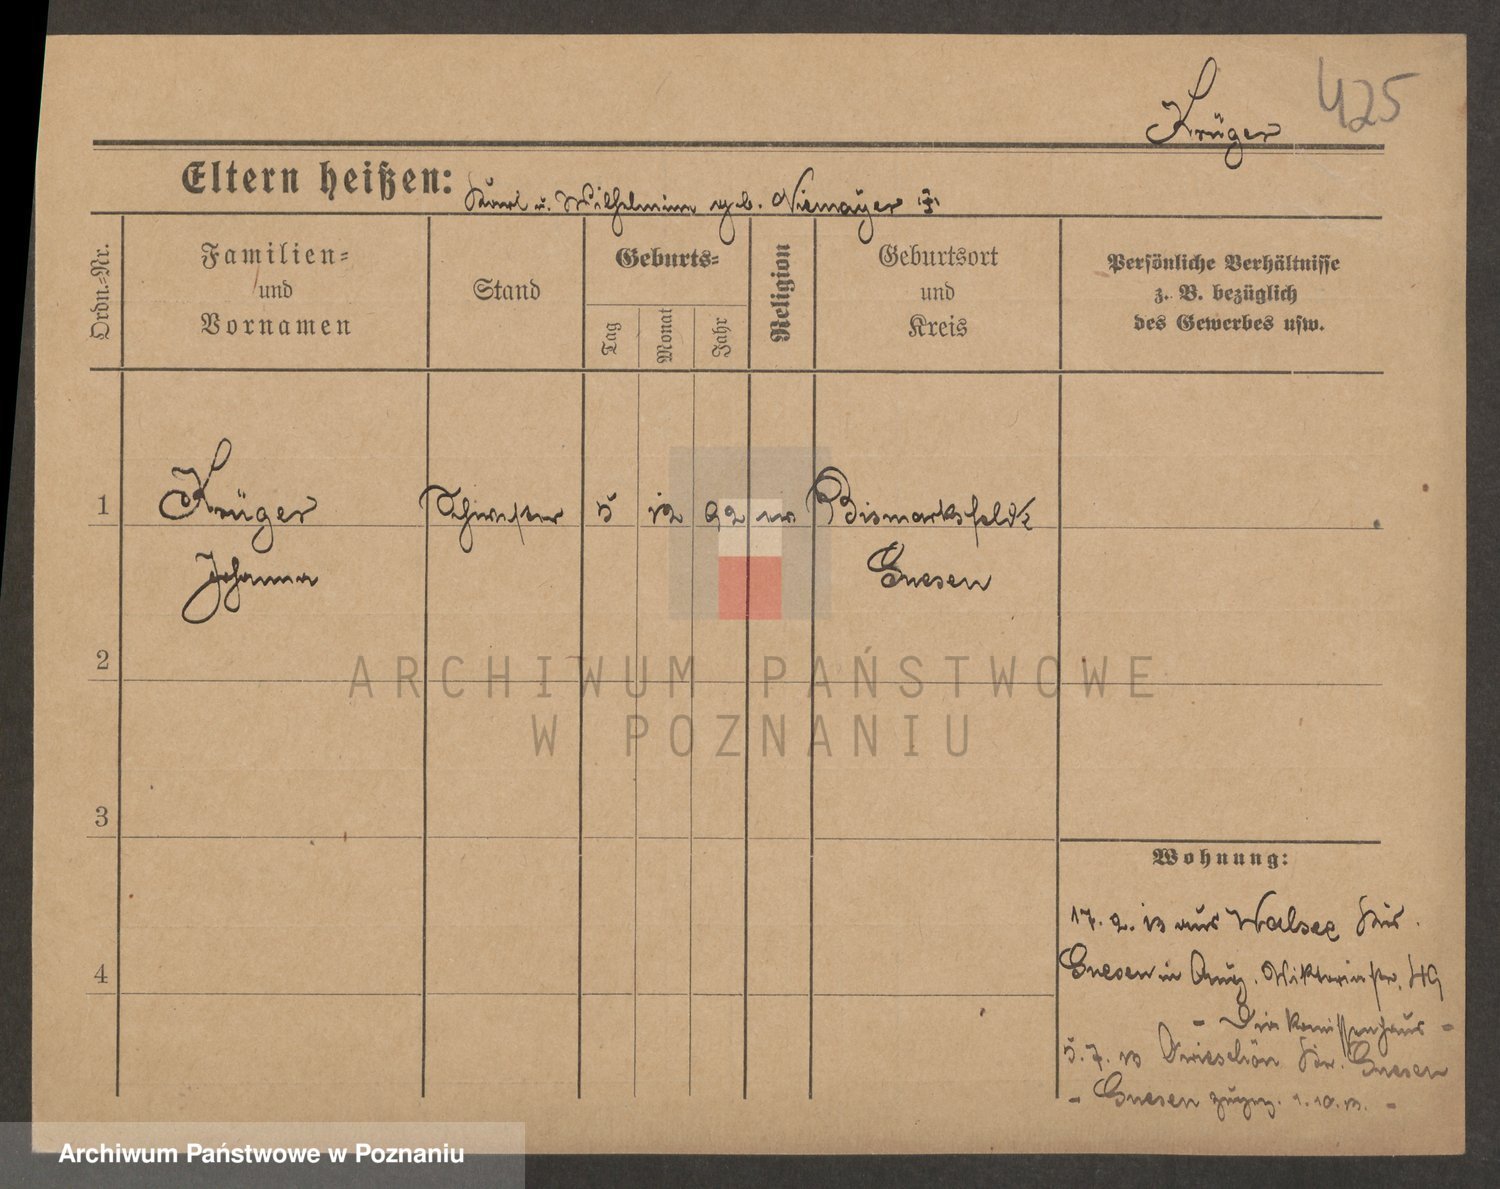 425
Krüger
Eltern heißen: Karl u. Wilhelmine geb. Niemayer
Ordn.-Nr.
Familien-
und
Vornamen
Stand
Geburts-
Tag
Monat
Jahr
Religion
Geburtsort
und
Kreis
Persönliche Verhältnisse
z. B. bezüglich
des Gewerbes usw.
1 Krüger Schwester 5 12 92 ev Bismarksfelde
Johanna Gnesen
2
3
4
Wohnung:
17. 2. 13 aus Walsee Kr.
Gnesen in Viktoriastr. 49
- Diakonissenhaus -
5. 7. 13 Kr. Gnesen
- Gnesen 1. 10. 13. -
ARCHIWUM PAŃSTWOWE
W POZNANIU
Archiwum Państwowe w Poznaniu